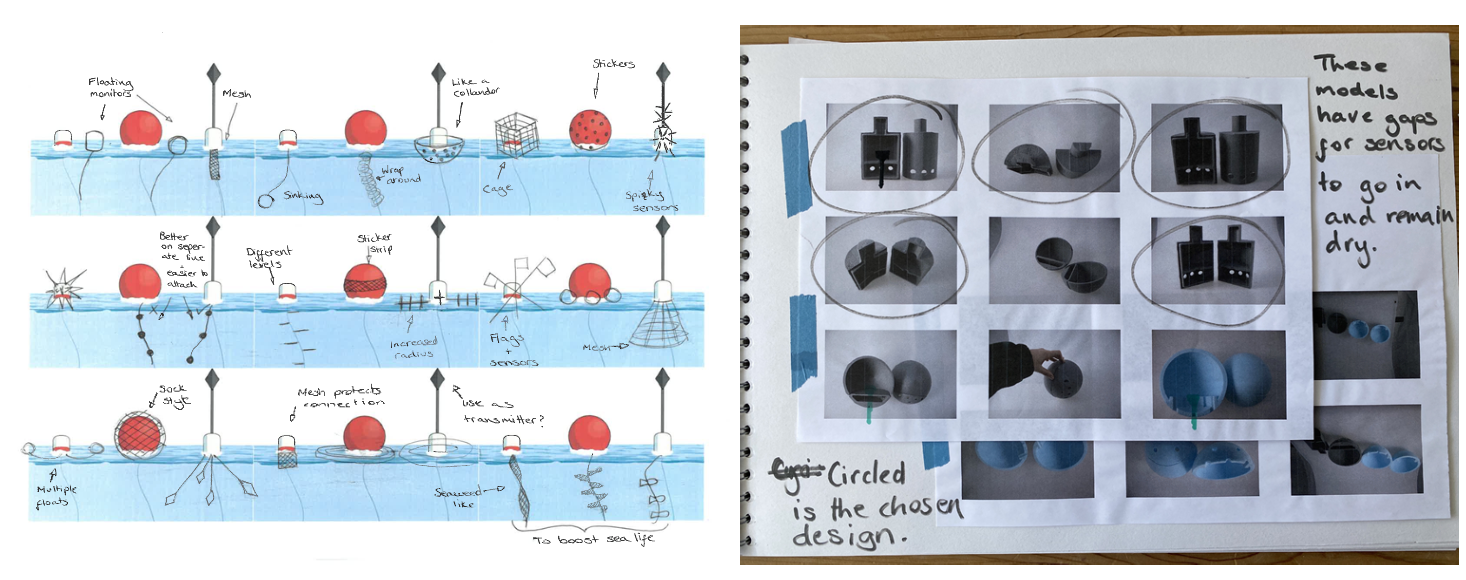 Floating
monitors
Mesh
Like a
collander
Stickers
Sinking
Wrap
around
Cage
Spiky
sensors
Better
on seper-
ate line
easier to
attach
Different
levels
Sticker
strip
Increased
radius
Flags
+
sensors
Mesh
Sock
style
Mesh protects
connection
Use as
transmitter?
Multiple
floats
Seaweed
like
To boost sea life
These
models
have gaps
for sensors
to go in
and remain
dry.
Circled
is the chosen
design.